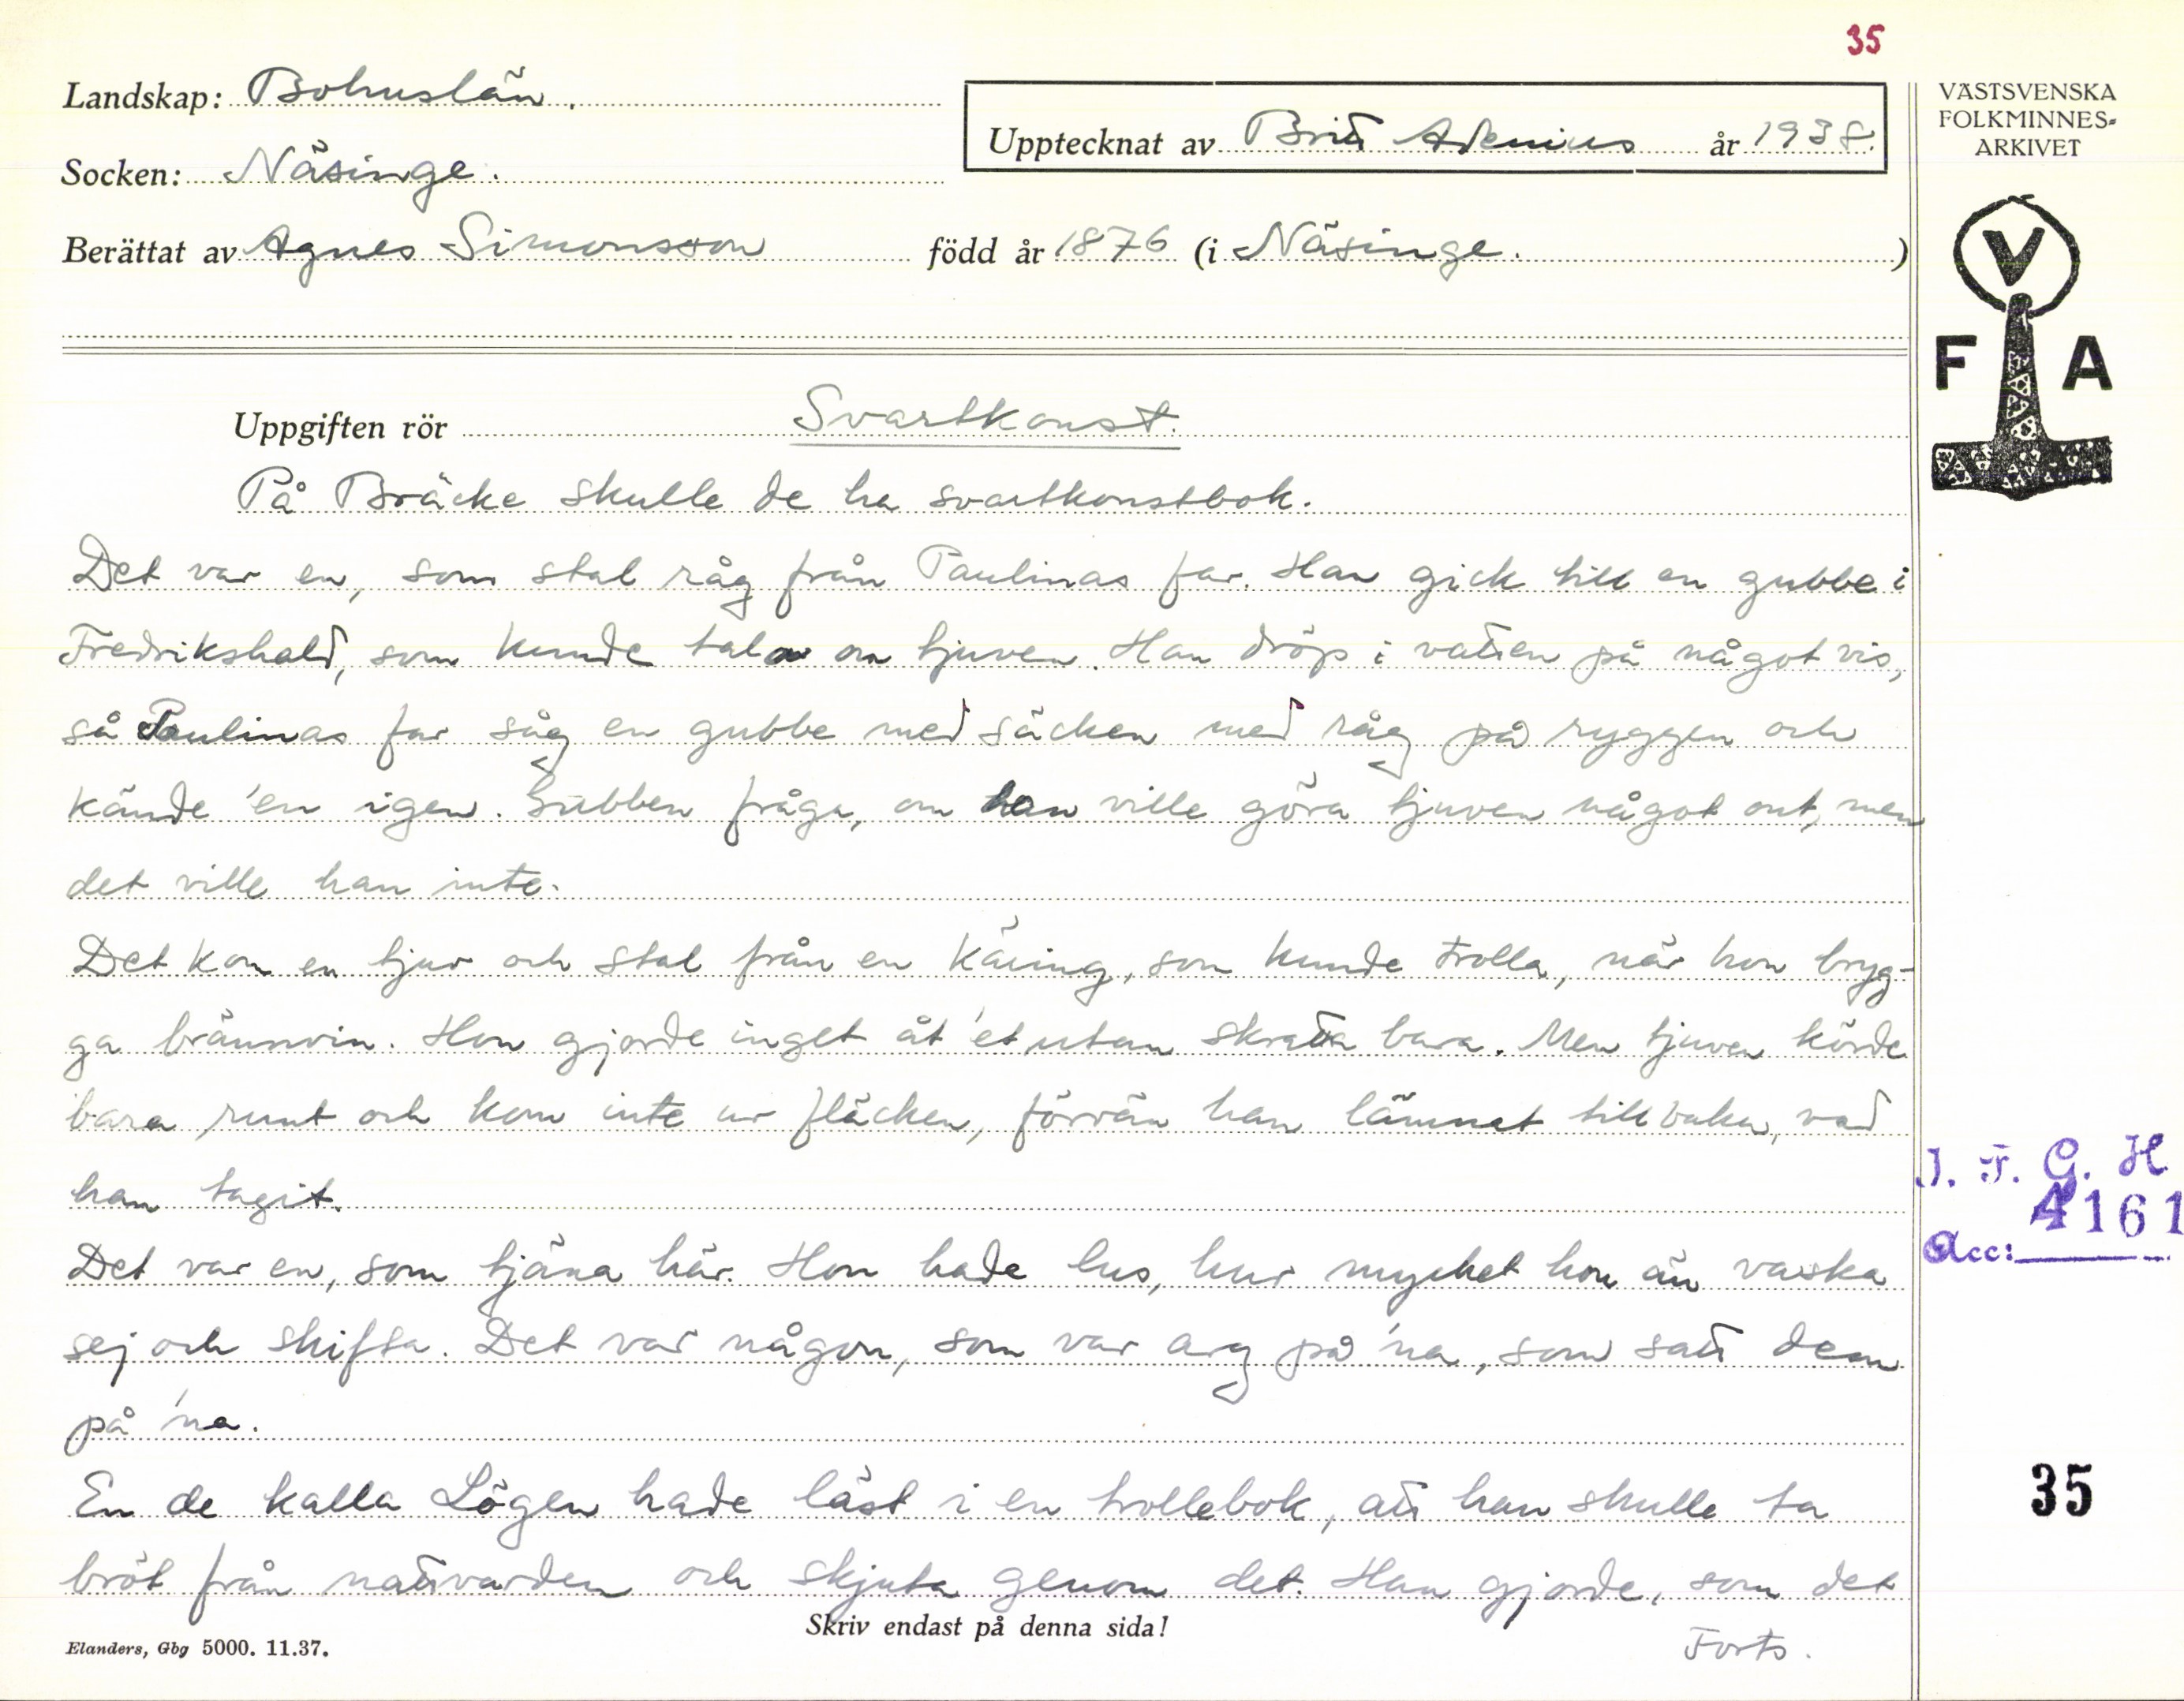 35
Landskap: Bohuslän.
Upptecknat av Britt Adenius år 1938.
Socken: Näsinge.
Berättat av Agnes Simonsson född år 1876 (i Näsinge.)
VÄSTSVENSKA
FOLKMINNES-
ARKIVET
V
F A
Uppgiften rör Svartkonst.
På Bräcke skulle de ha svartkonstbok.
Det var en, som stal råg från Paulinas far. Han gick till en gubbe i
Fredrikshald, som kunde tala om tjuven. Han dröp i vatten på något vis,
så Paulinas far såg en gubbe med säcken med råg på ryggen och
kände 'en igen. Gubben fråga, om han ville göra tjuven något ont, men
det ville han inte.
Det kom en tjuv och stal från en käring, som kunde trolla, när hon bryg-
ga brännvin. Hon gjorde inget åt 'et utan skratta bara. Men tjuven körde
bara runt och kom inte ur fläcken, förrän han lämnat tillbaka, vad
han tagit.
Det var en, som tjäna här. Hon hade lus, hur mycket hon än vaska
sej och skifta. Det var någon, som var arg på 'na, som satt dem
på 'na.
En de kalla Lögen hade läst i en trollebok, att han skulle ta
bröt från nattvarden och skjuta genom det. Han gjorde, som det
Forts.
Skriv endast på denna sida!
Elanders, Gbg 5000. 11.37.
I. F. G. H
4161
Acc:
35